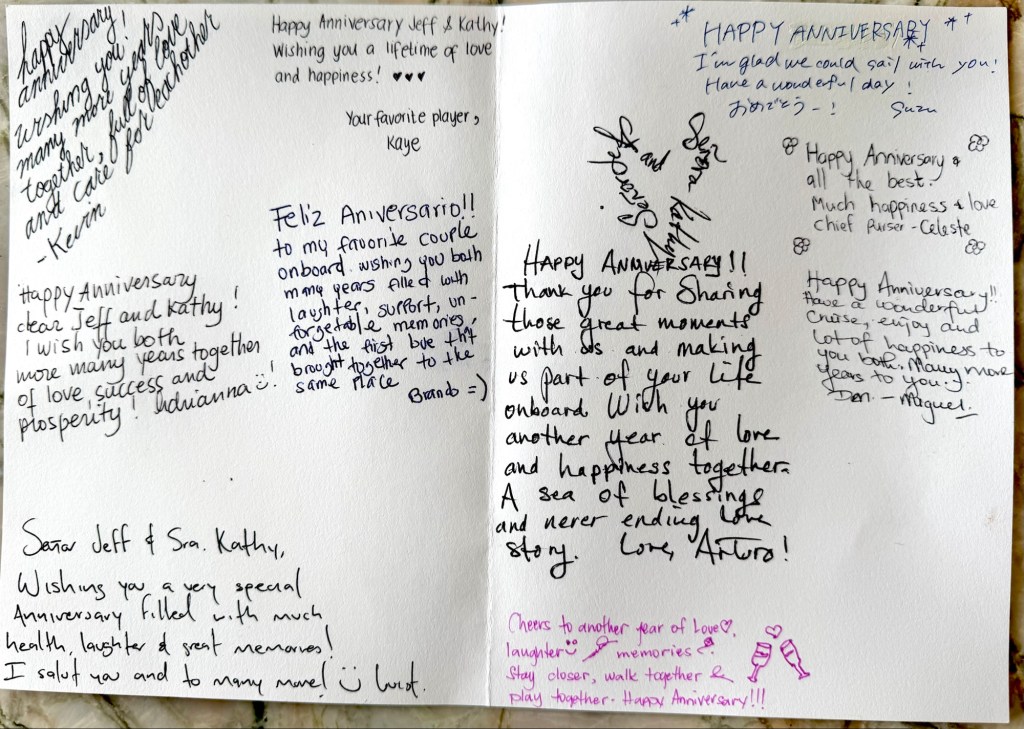 happy
anniversary!
wishing you!
many more years
together, full of love
and care for eachother
-Kevin
Happy Anniversary Jeff & Kathy!
Wishing you a lifetime of love
and happiness! ♥♥♥
Your favorite player,
Kaye
Feliz Aniversario!!
to my favorite couple
onboard. wishing you both
many years filled with
laughter, support, un-
forgetable memories,
and the first love that
brought together to the
same place
Brando =)
Happy Anniversary
dear Jeff and Kathy!
I wish you both
more many years together
of love, success and
prosperity! Adrianna ☺!
Señor Jeff & Sra. Kathy,
Wishing you a very special
Anniversary filled with much
health, laughter & great memories!
I salut you and to many more!
HAPPY ANNIVERSARY
I'm glad we could sail with you!
Have a wonderful day!
おめでとうー! Suzu
Señora Kathy
and
Señor Jeff
Happy Anniversary &
all the best.
Much happiness & love
Chief Purser - Celeste
Happy Anniversary!!
Thank you for Sharing
those great moments
with us and making
us part of your life
onboard. Wish you
another year of love
and happiness together.
A sea of blessings
and never ending love
story. Love, Arturo!
Happy Anniversary!!
Have a wonderful
Cruise, enjoy and
Lot of happiness to
you both. Many more
years to you!
Miguel.
Cheers to another year of Love♡,
laughter☺ memories
Stay closer, walk together &
play together. Happy Anniversary!!!